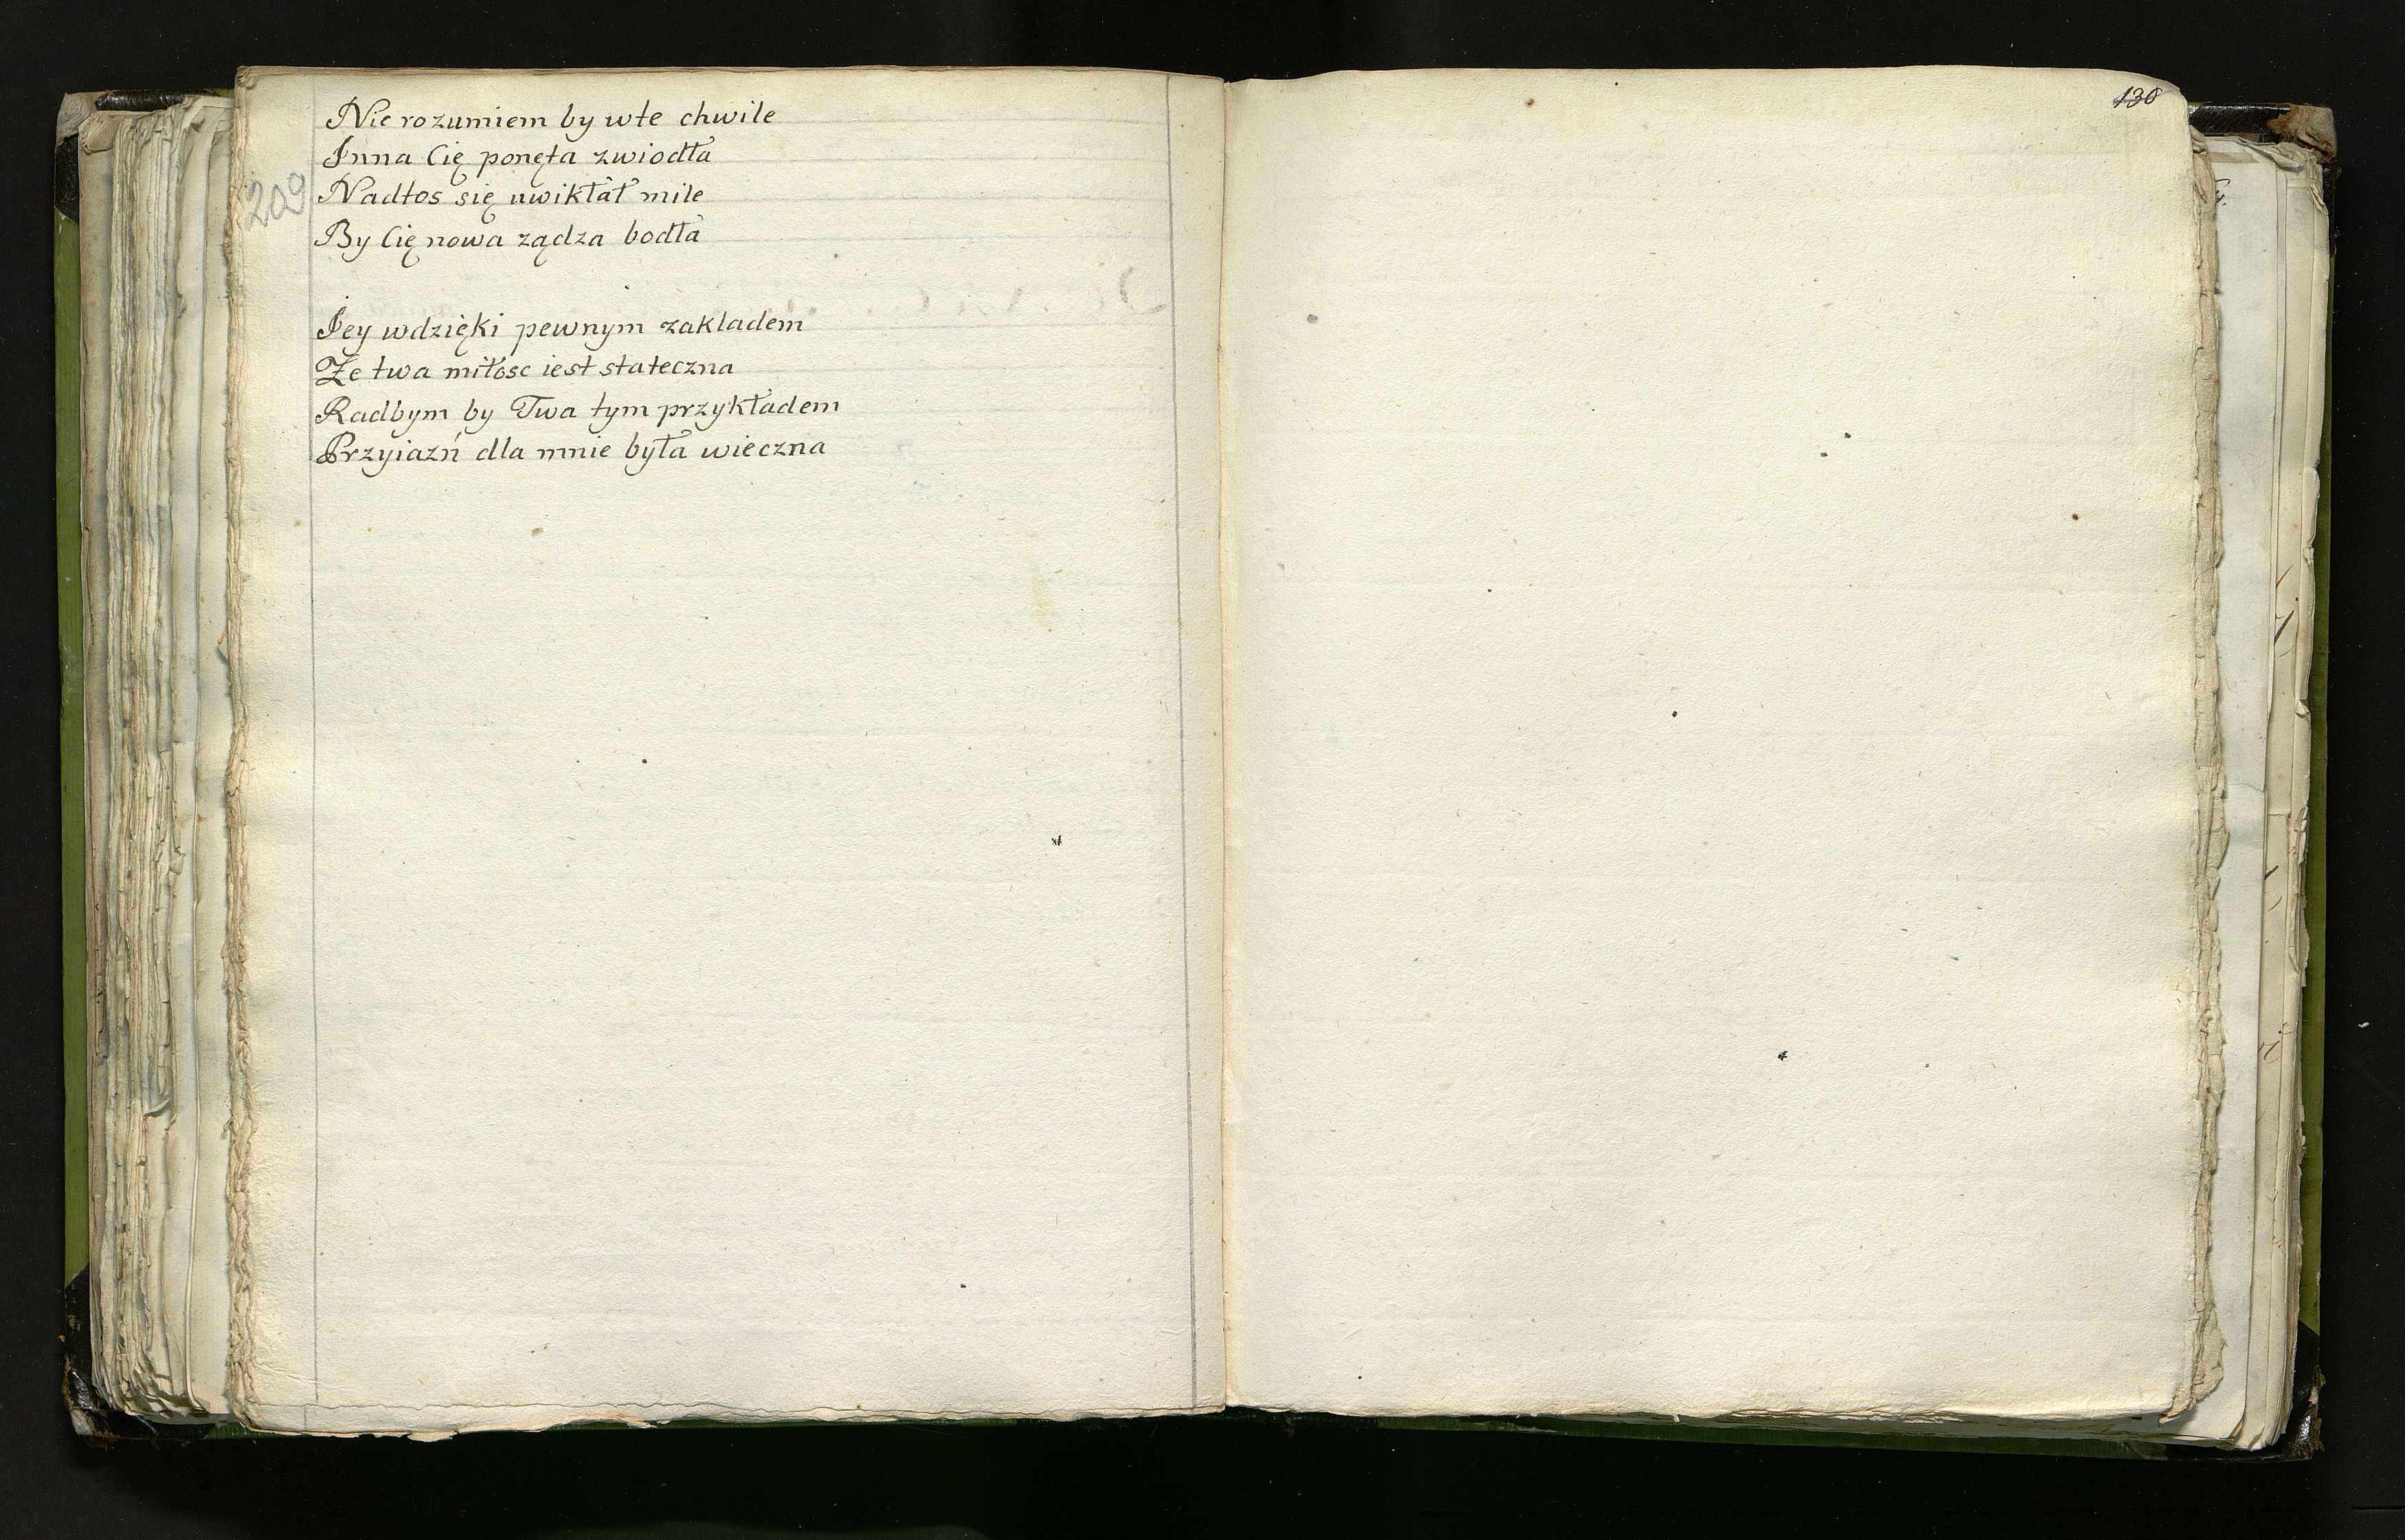 Nie rozumiem by wte chwile
Inna Cię ponęta zwiodła
209
Nadtos się uwikłał mile
By Cię nowa ządza bodła
Iey wdzięki pewnym zakladem
Ze twa miłosc iest stateczna
Radbym by Twa tym przykładem
Przyiazń dla mnie była wieczna
130